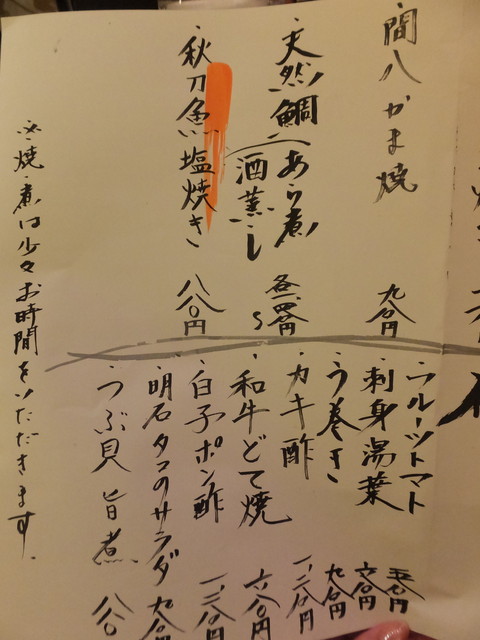 ・間八かま焼 九〇〇円
・天然鯛 あら煮
酒蒸し
・秋刀魚塩焼き 八〇〇円
焼・煮は少々お時間をいただきます。
・フルーツトマト 五〇〇円
・刺身湯葉 六〇〇円
・う巻き 九〇〇円
・カキ酢 一、二〇〇円
・和牛どて焼 六〇〇円
・白子ポン酢 一、二〇〇円
・明石タコのサラダ 九〇〇円
・つぶ貝旨煮 八〇